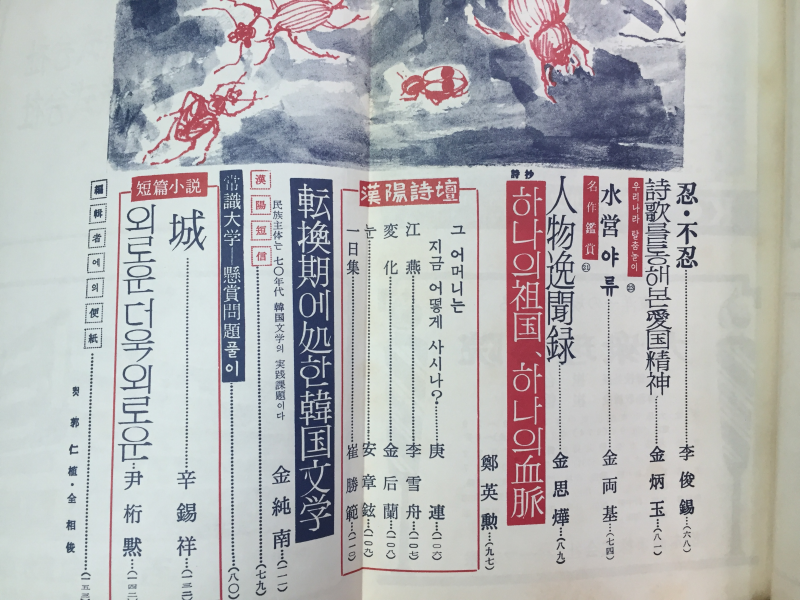 忍·不忍 李俊錫(六八)
詩歌를통해본愛国精神 金炳玉(八一)
우리나라 탈춤놀이
水営야류 金両基(七四)
名作鑑賞
人物逸聞録 金思燁(八九)
詩抄
하나의祖国、하나의血脈
鄭英勲(九七)
漢陽詩壇
그 어머니는
지금 어떻게 사시나? 庚連
江燕 李雪舟
変化 金后蘭
눈 安章鉉
一日集 崔勝範
転換期에処한韓国文学
民族主体는 七〇年代 韓国文学의 実践課題이다
金純南
漢陽短信 (七九)
常識大学—懸賞問題풀이 (八〇)
短篇小説
城 辛錫祥
외로운더욱외로운 尹桁黙
編輯者에의便紙
컷 郭仁植·全相俊